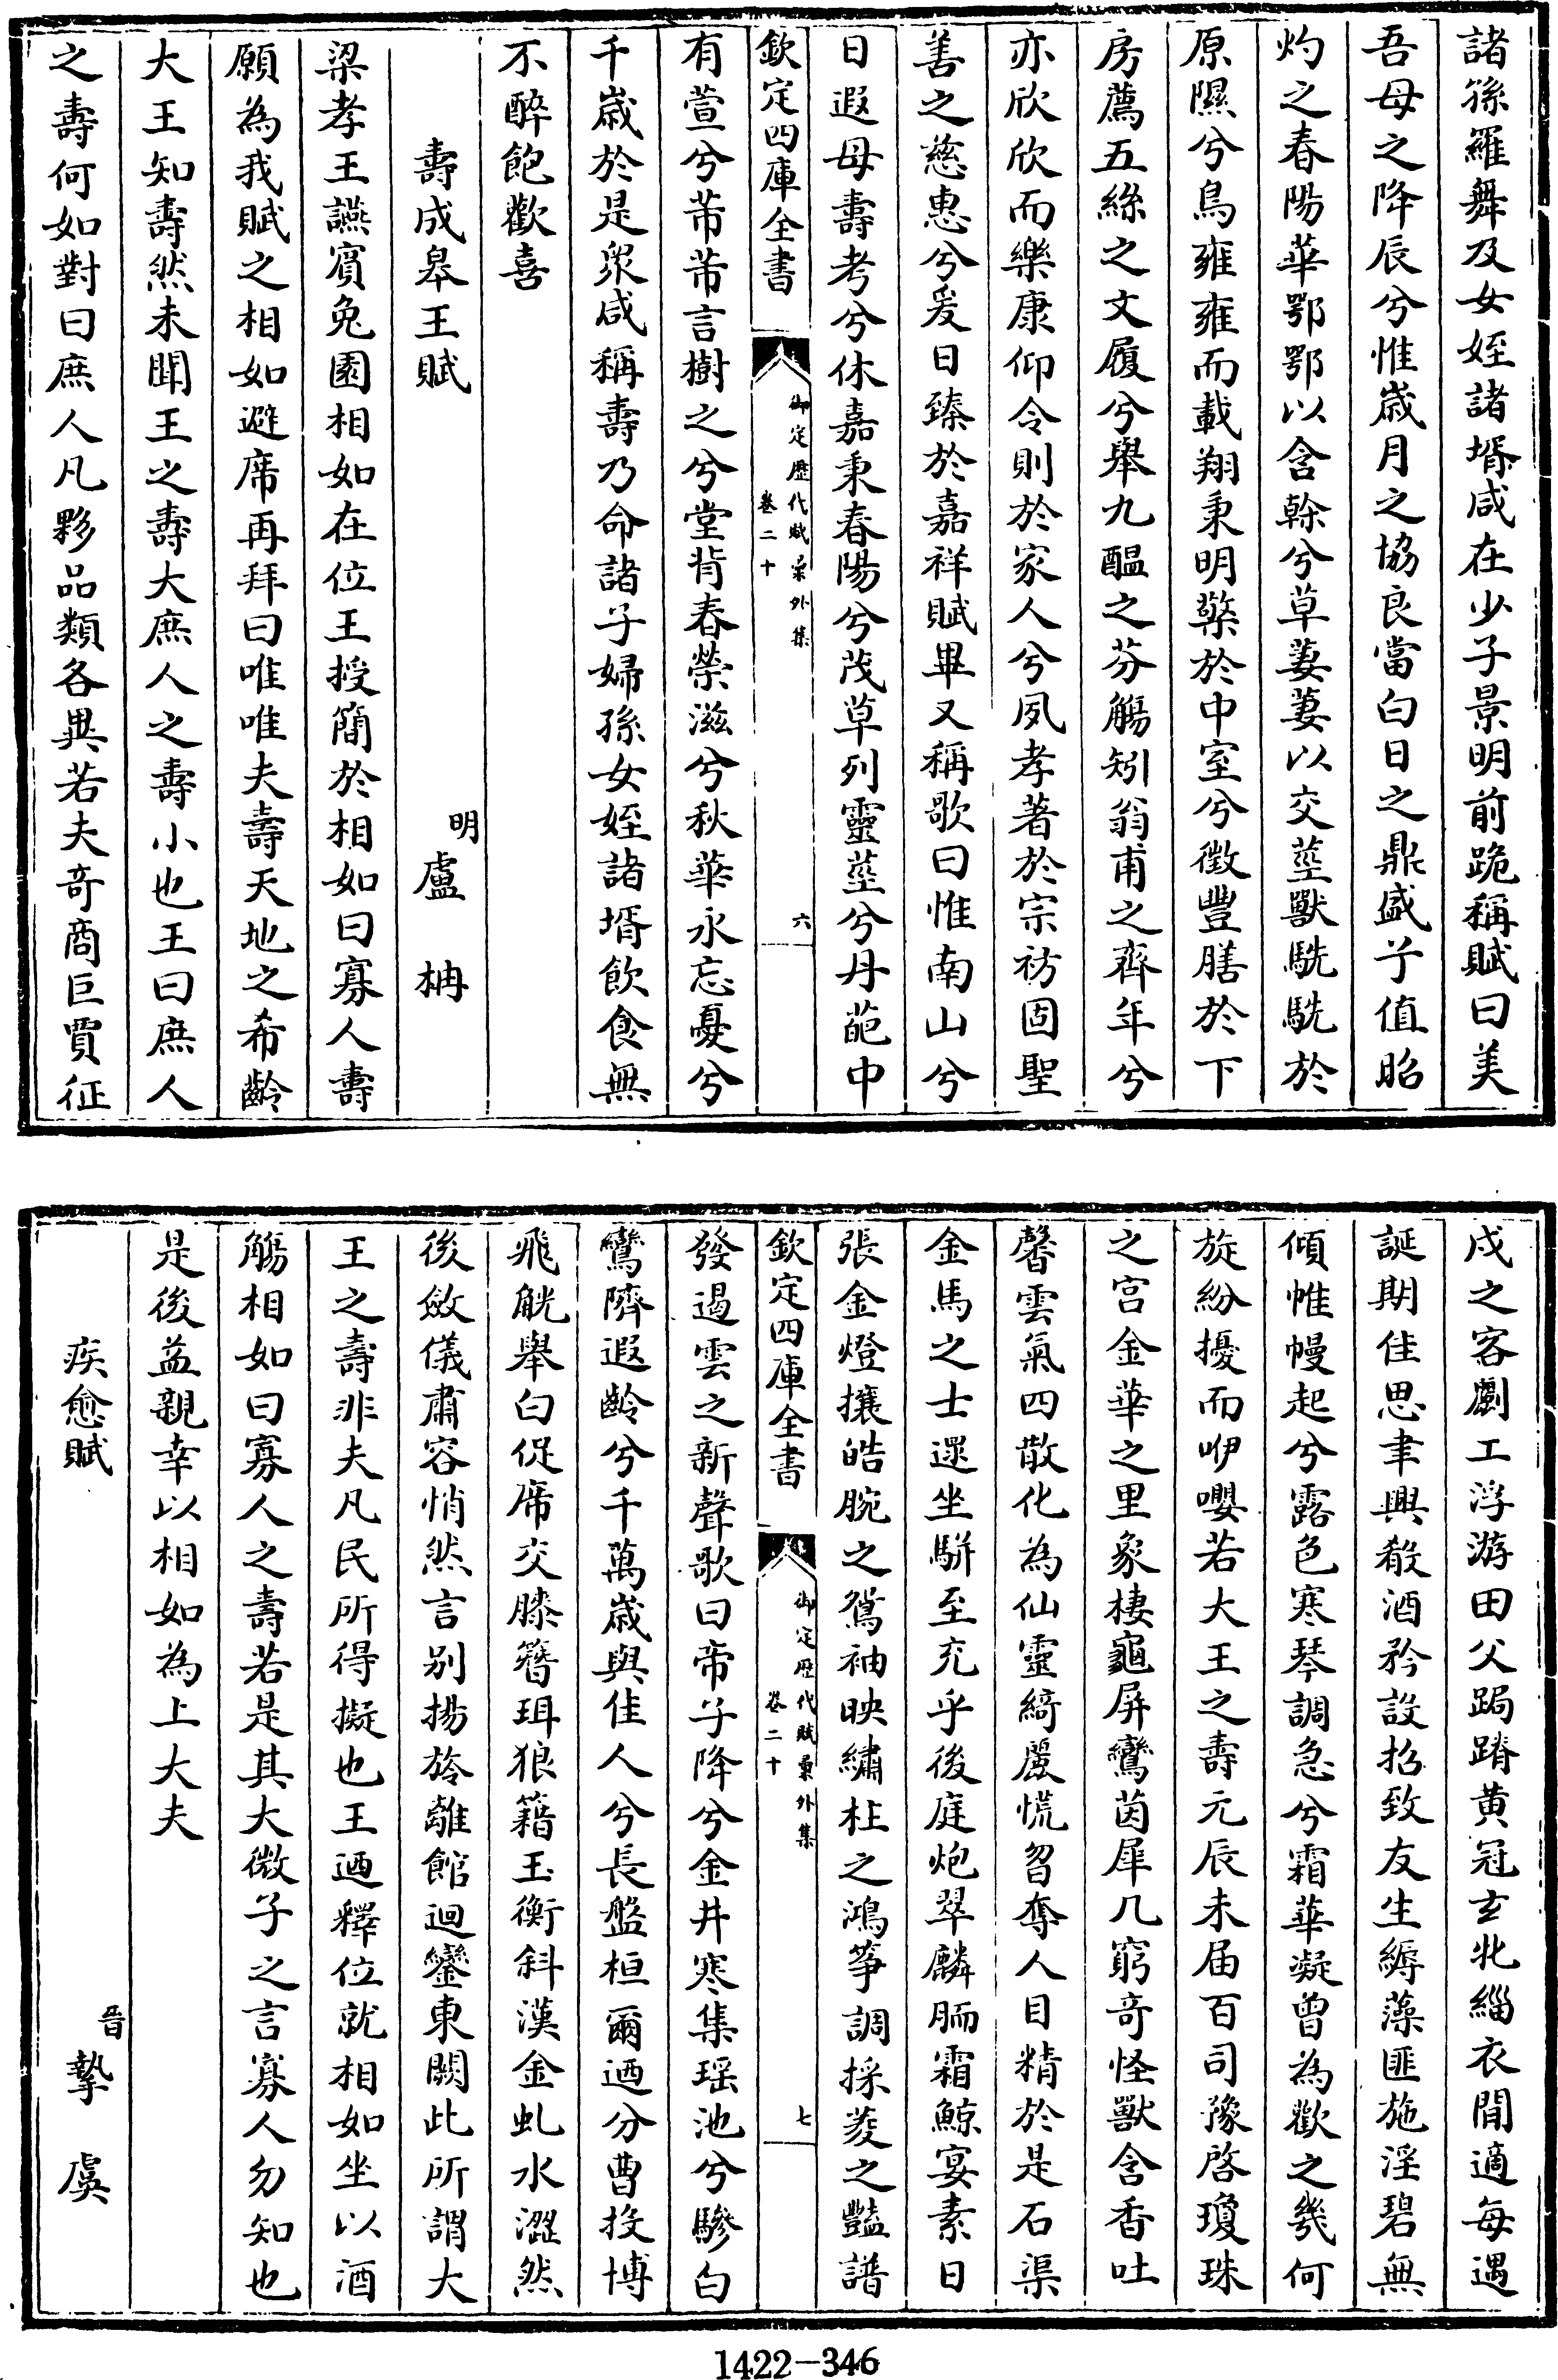 諸孫羅舞及女姪諸壻咸在少子景明前跪稱賦曰美
吾母之降辰兮惟歳月之協良當白日之鼎盛兮值昭
灼之春陽華鄂鄂以含榦兮草萋萋以交莖獸駪駪於
原隰兮鳥雍雍而載翔秉明藥於中室兮徵豐膳於下
房薦五絲之文履兮舉九醖之芬觴矧翁甫之齊年兮
亦欣欣而樂康仰令則於家人兮夙孝著於宗祊固聖
善之慈惠兮爰日臻於嘉祥賦畢又稱歌曰惟南山兮
日遐母壽考兮休嘉秉春陽兮茂草列靈莖兮丹葩中
欽定四庫全書
御定歴代賦彙外集
卷二十
六
有萱兮芾芾言樹之兮堂背春榮滋兮秋華永忘憂兮
千歳於是衆咸稱壽乃命諸子婦孫女姪諸壻飲食無
不醉飽歡喜
壽成皋王賦
明
盧柟
梁孝王讌賔兔園相如在位王授簡於相如曰寡人壽
願為我賦之相如避席再拜曰唯唯夫壽天地之希齡
大王知壽然未聞王之壽大庶人之壽小也王曰庶人
之壽何如對曰庶人凡夥品類各異若夫奇商巨賈征
戍之客劚工浮游田父跼蹐黄冠玄牝緇衣閒適每遇
誕期佳思聿興殽酒矜設招致友生縟藻匪施淫碧無
傾帷幔起兮露色寒琴調急兮霜華凝曾為歡之幾何
旋紛擾而咿嚶若大王之壽元辰未届百司豫啓瓊珠
之宫金華之里象棲龜屏鸞茵犀几窮奇怪獸含香吐
馨雲氣四散化為仙靈綺麗慌曶奪人目精於是石渠
金馬之士還坐駢至充乎後庭炮翠麟胹霜鯨宴素日
張金燈攘皓腕之鴛袖映繡柱之鴻箏調採菱之豔譜
欽定四庫全書
御定歴代賦彙外集
卷二十
七
發遏雲之新聲歌曰帝子降兮金井寒集瑶池兮驂白
鸞隮遐齡兮千萬歳與佳人兮長盤桓爾迺分曹投博
飛觥舉白促席交膝簪珥狼籍玉衡斜漢金虬水澀然
後斂儀肅容悄然言別揚旍離館迴鑾東闕此所謂大
王之壽非夫凡民所得擬也王迺釋位就相如坐以酒
觴相如曰寡人之壽若是其大微子之言寡人勿知也
是後益親幸以相如為上大夫
疾愈賦
晋
摯虞
1422-346